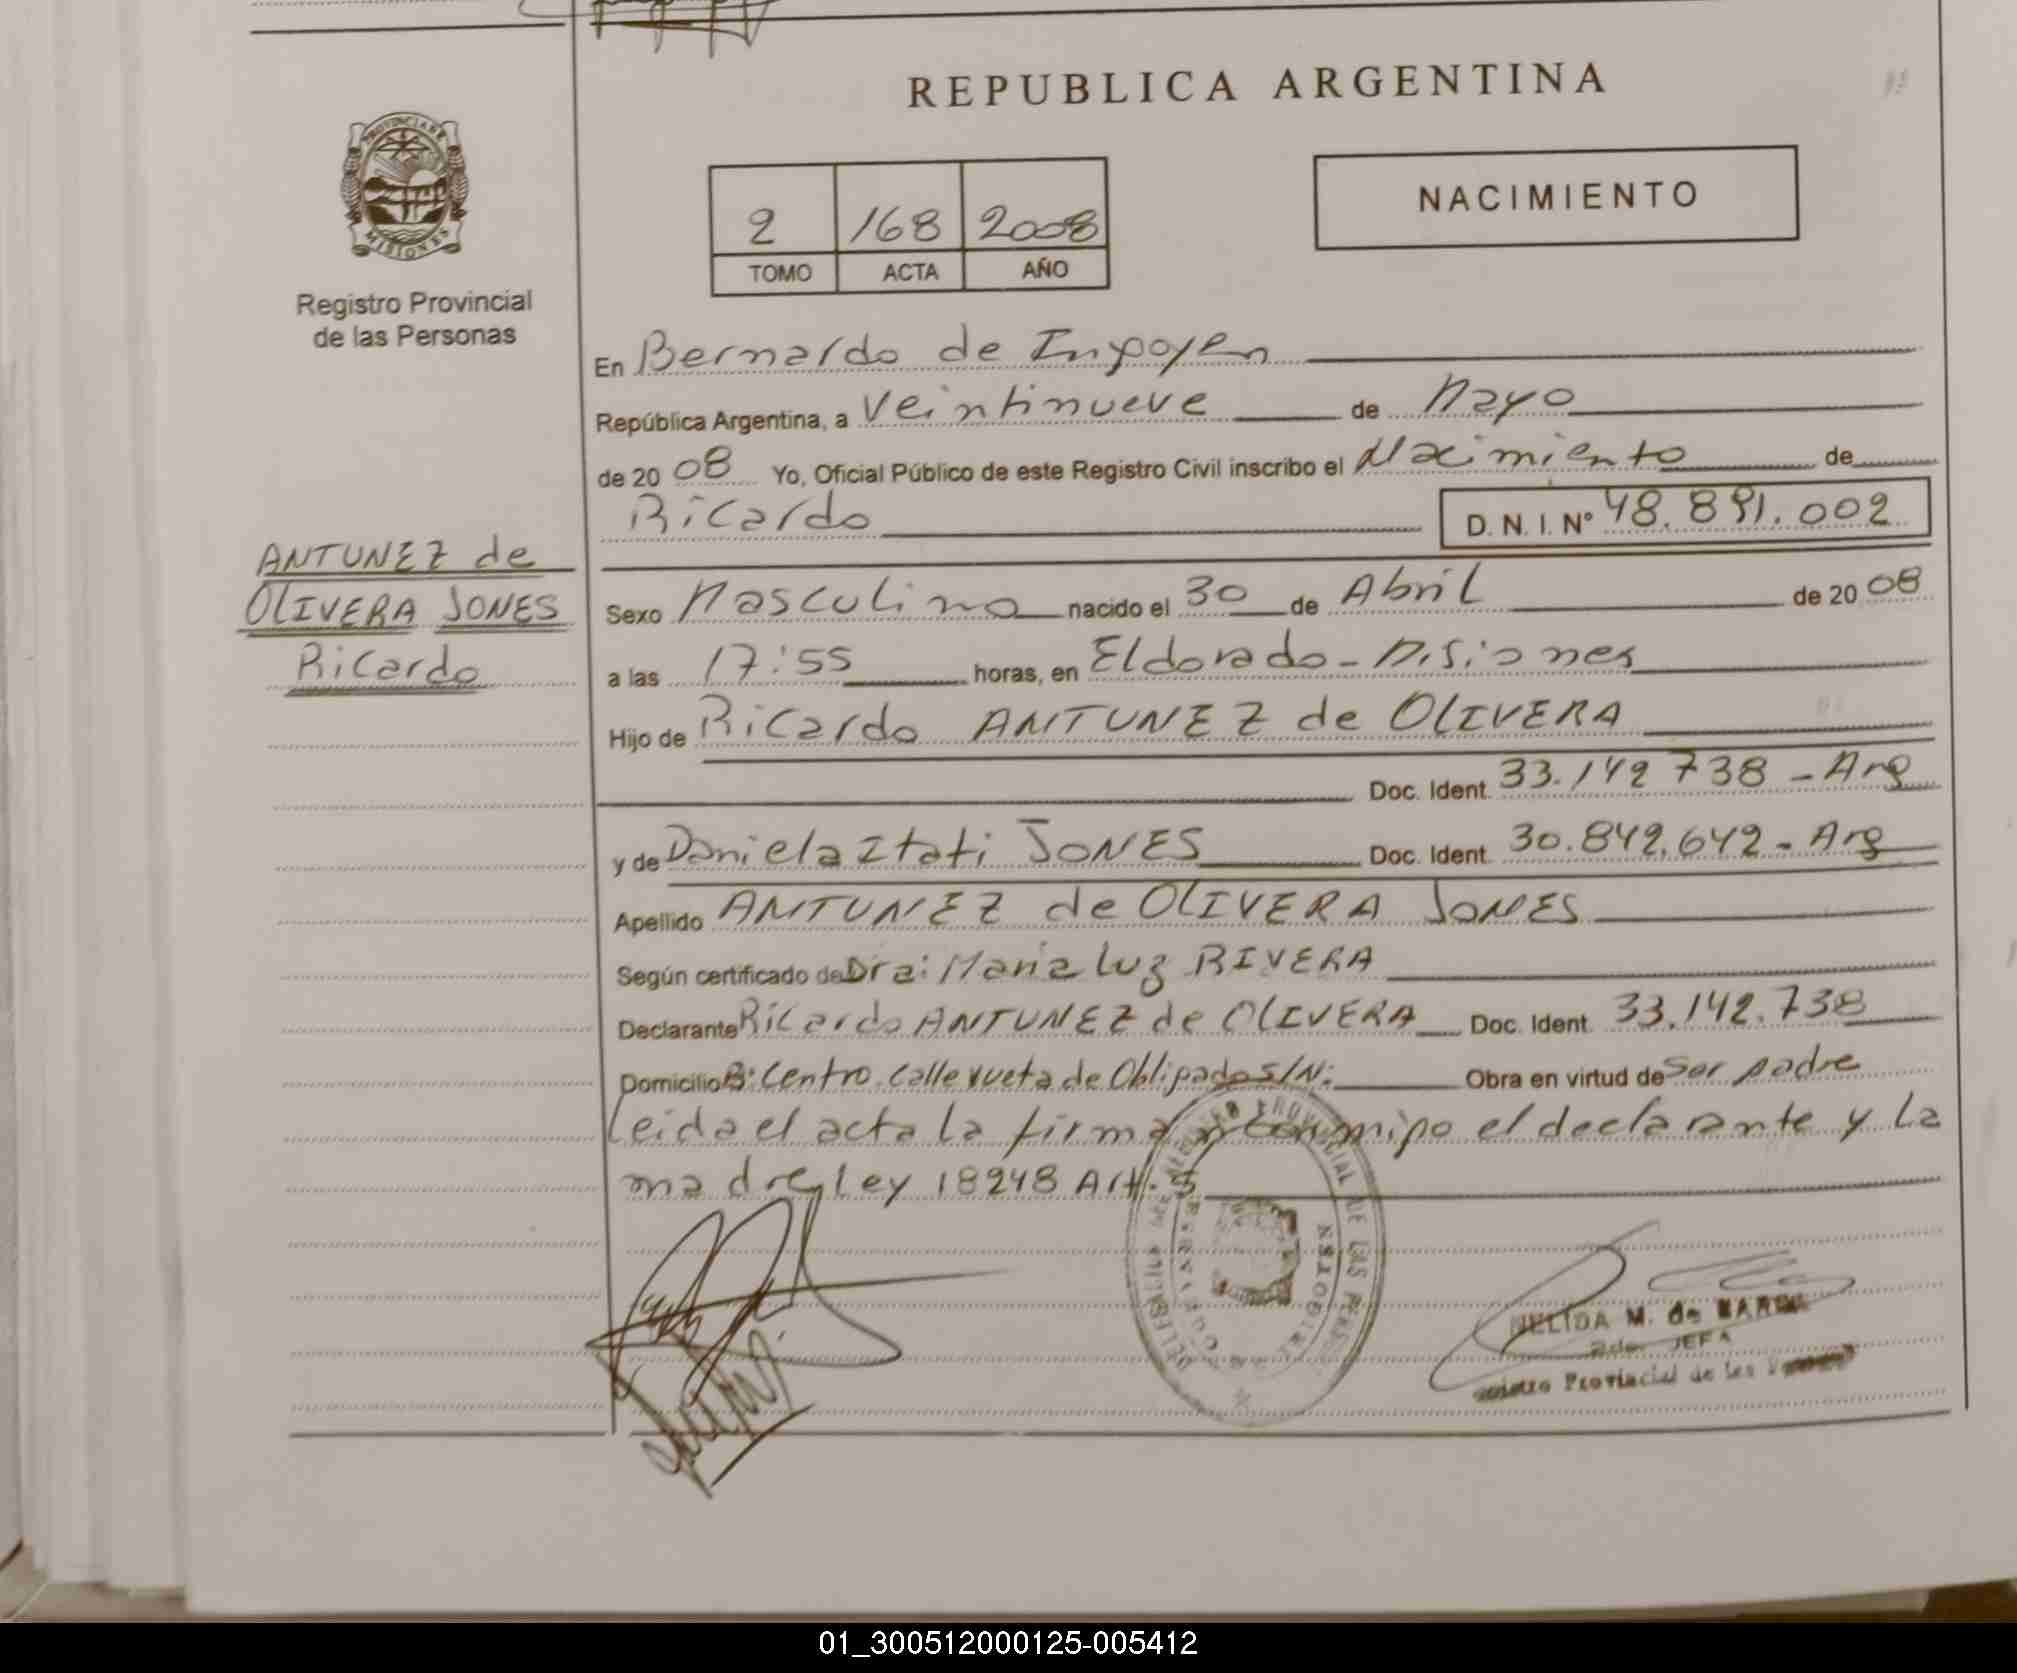 REPUBLICA ARGENTINA
PROVINCIA DE
MISIONES
Registro Provincial
de las Personas
2 168 2008
TOMO ACTA AÑO
NACIMIENTO
ANTUNEZ de
OLIVERA JONES
Ricardo
En Bernardo de Irigoyen
República Argentina, a Veintinueve de Mayo
de 20 08 Yo, Oficial Público de este Registro Civil inscribo el Nacimiento de
Ricardo D. N. I. Nº 48.891.002
Sexo Masculino nacido el 30 de Abril de 20 08
a las 17:55 horas, en Eldorado - Misiones
Hijo de Ricardo ANTUNEZ de OLIVERA
Doc. Ident. 33.142 738 - Arg
y de Daniela Itati JONES Doc. Ident. 30.842.642 - Arg
Apellido ANTUNEZ de OLIVERA JONES
Según certificado de Dra: Maria Luz RIVERA
Declarante Ricardo ANTUNEZ de OLIVERA Doc. Ident. 33.142.738
Domicilio Bº Centro. Calle vuelta de Obligado S/N: Obra en virtud de Ser padre
Leida el acta la firma conmigo el declarante y la
madre, Ley 18248 Art. 5
NELIDA M. de
JEFA
Provincial de las
01_300512000125-005412